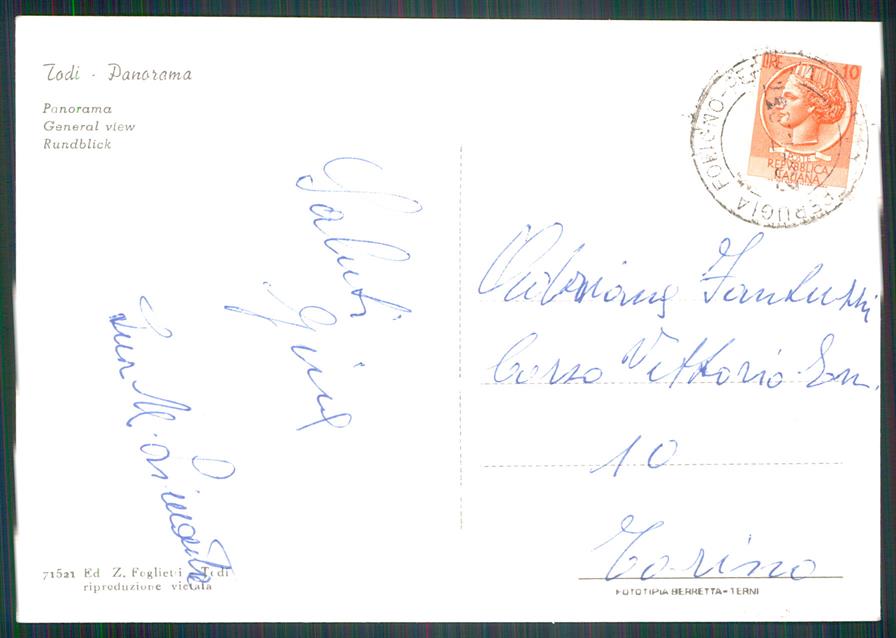 Todi - Panorama
Panorama
General view
Rundblick
LIRE 10
REPVBBLICA
ITALIANA
PERUGIA FOLIGNO
Saluti
Adriana Fantuzzi
Corso Vittorio Em.
10
Torino
71521 Ed Z. Foglietti - Todi
riproduzione vietata
FOTOTIPIA BERRETTA - TERNI